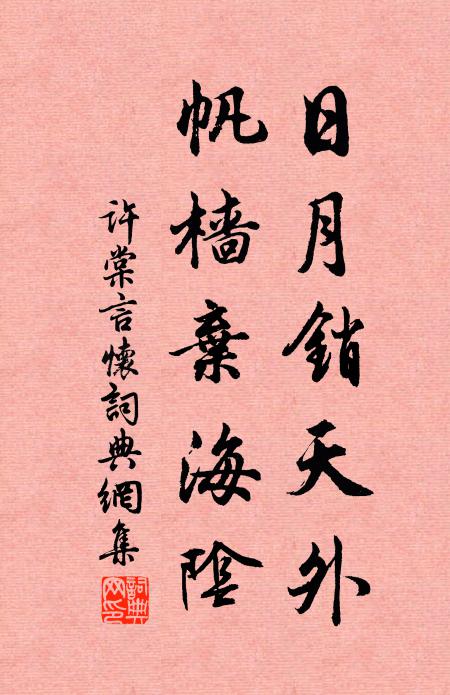 日月銷天外
帆檣棄海陰
许棠言懷詞典網集
詞典網印